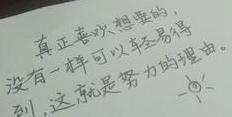 真正喜欢想要的，
没有一样可以轻易得
到，这就是努力的理由。